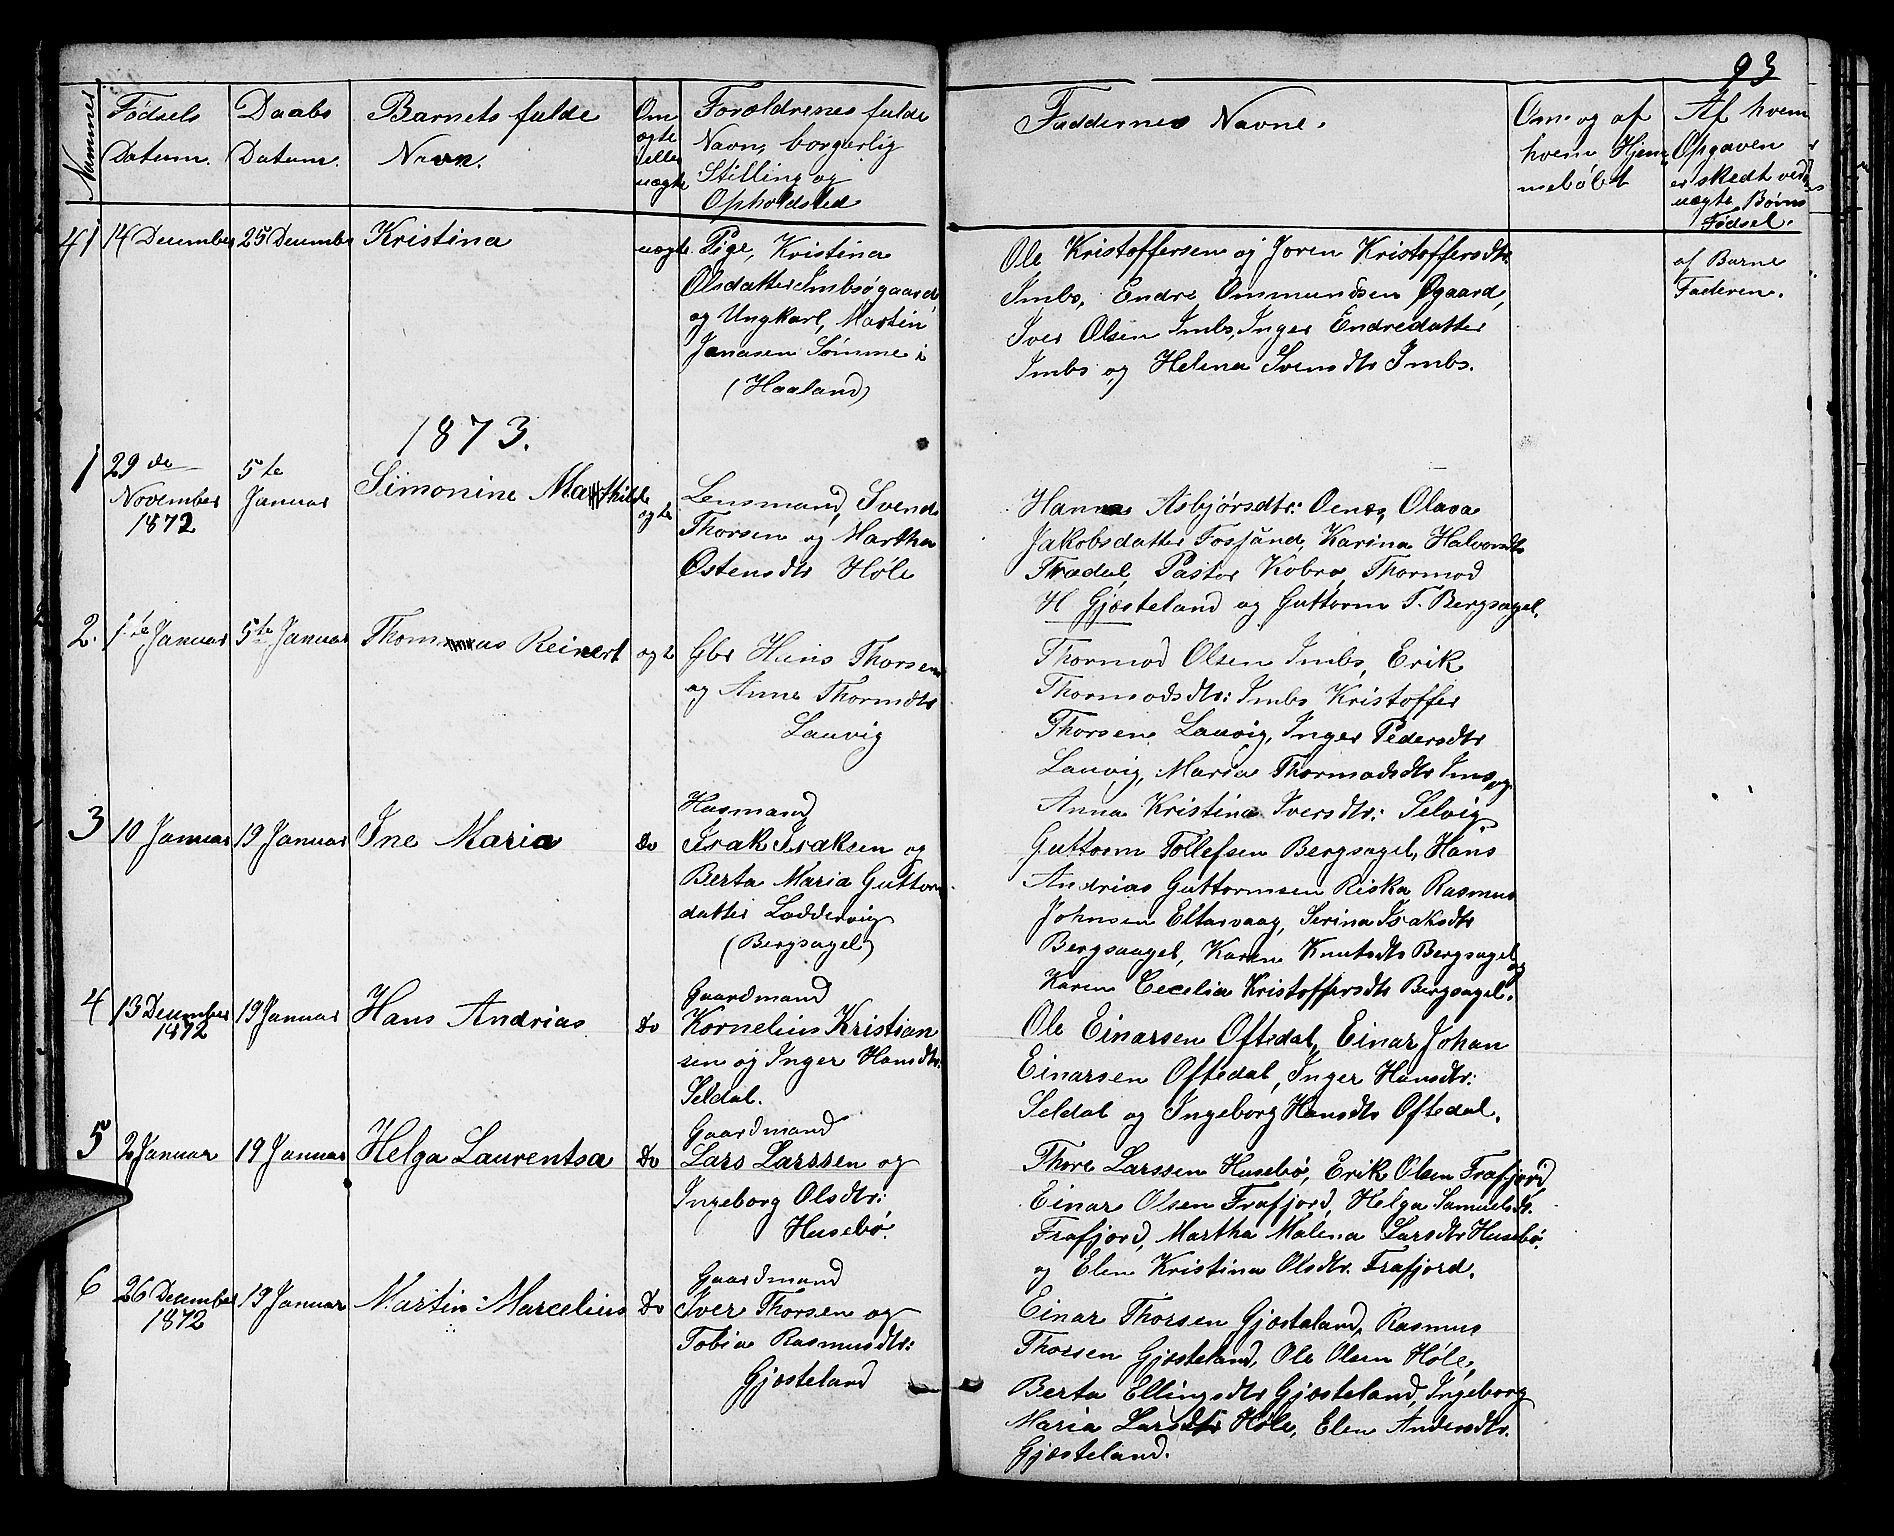 93
Nummer
Fødsels Datum.
Daabs Datum.
Barnets fulde Navn.
Om ogte eller uægte
Forældrenes fulde Navn, borgerlig Stilling og Opholdsted
Faddernes Navne.
Om og af hvem Hjemmebøbt
Af hvem Opgaven er skedt ved uægte Børns Fødsel.
41 14 December 25 December Kristina uægte
Pige, Kristina
Olsdatter Imbsøgaard
og Ungkarl, Martin
Janasen Sømme i
(Haaland)
Ole Kristoffersen og Joren Kristoffersdtr:
Imbs, Endre Ommundsen Øgaard,
Iver Olsen Imbs, Inger Endredatter
Imbs og Helena Svensdtr Imbs.
af Barne
Faderen.
1873.
1 29de November 1872 5te Januar Simonine Mathilde ogte
Lensmand, Svend
Thorsen og Martha
Østensdtr Høle
Hanna Asbjørsdtr: Oenes, Olava
Jakobsdatter Fossand, Karina Halvorsdtr
Trædal, Pastor Kobro, Thormod
H Gjesteland og Guttorm T. Bergsagel.
2. 1te Januar 5te Januar Thommas Reinert ogte
Gbr Hans Thorsen
og Anne Thormdtr
Lauvig
Thormod Olsen Imbs, Erik
Thormodsdtr: Imbs Kristoffer
Thorsen Lauvig, Inger Pedersdtr
Lauvig, Maria Thormodsdtr Ims, og
Anna Kristina Iversdtr: Selvig
3 10 Januar 19 Januar Ine Maria Do
Husmand
Isak Isaksen og
Berta Maria Guttorm
datter Loddervig
(Bergsagel)
Guttorm Tollefsen Bergsagel, Hans
Andrias Guttormsen Riska Rasmus
Johnsen Eltarvaag, Serina Isaksdtr
Bergsaagel, Karen Knutsdtr Bergsagel og
Karen Cecelia Kristoffersdtr Bergsagel.
4 13 December 1872 19 Januar Hans Andrias Do
Gaardmand
Kornelius Kristian
sen og Inger Hansdtr:
Seldal.
Ole Einarsen Oftedal, Einar Johan
Einarsen Oftedal, Inger Hansdtr:
Seldal og Ingeborg Hansdtr Oftedal.
5 2 Januar 19 Januar Helga Laurentsa Do
Gaardmand
Lars Larssen og
Ingeborg Olsdtr:
Husebø.
Thore Larssen Husebø, Erik Olsen Frafjord,
Einar Olsen Frafjord, Helga Samuelsdtr.
Frafjord, Martha Malena Larsdtr Husebø.
og Elen Kristina Olsdtr. Frafjord.
6 26 December 1872 19 Januar Martin Marcelius Do
Gaardmand
Iver Thorsen og
Tobia Rasmusdtr:
Gjesteland
Einar Thorsen Gjesteland, Rasmus
Thorsen Gjesteland, Ole Olsen Høle,
Berta Ellingsdtr Gjesteland, Ingeborg
Maria Larsdtr Høle, Elen Andersdtr.
Gjesteland.